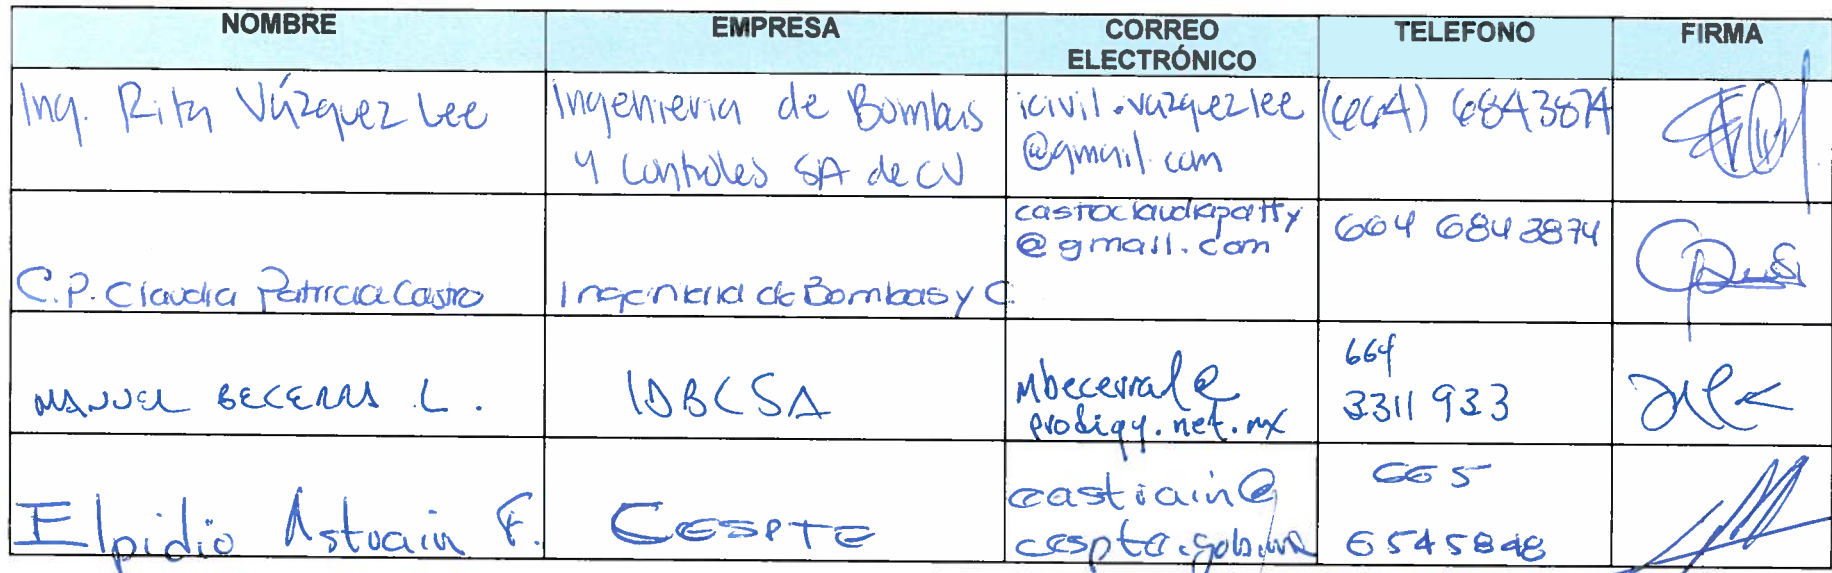 NOMBRE EMPRESA CORREO ELECTRÓNICO TELEFONO FIRMA
Ing. Rita Vázquez Lee
Ingenieria de Bombas
y Controles SA de CV
icivil.vazquezlee
@gmail.com
(664) 6843874
C.P. Claudia Patricia Castro
Ingenieria de Bombas y C.
castroclaudiapatty
@gmail.com
664 684 3874
MANUEL BECERRA L.
IDBCSA
mbecerral@
prodigy.net.mx
664
3311 933
Elpidio Astuain F.
CESPTE
eastuain@
cespte.gob.mx
665
6545848